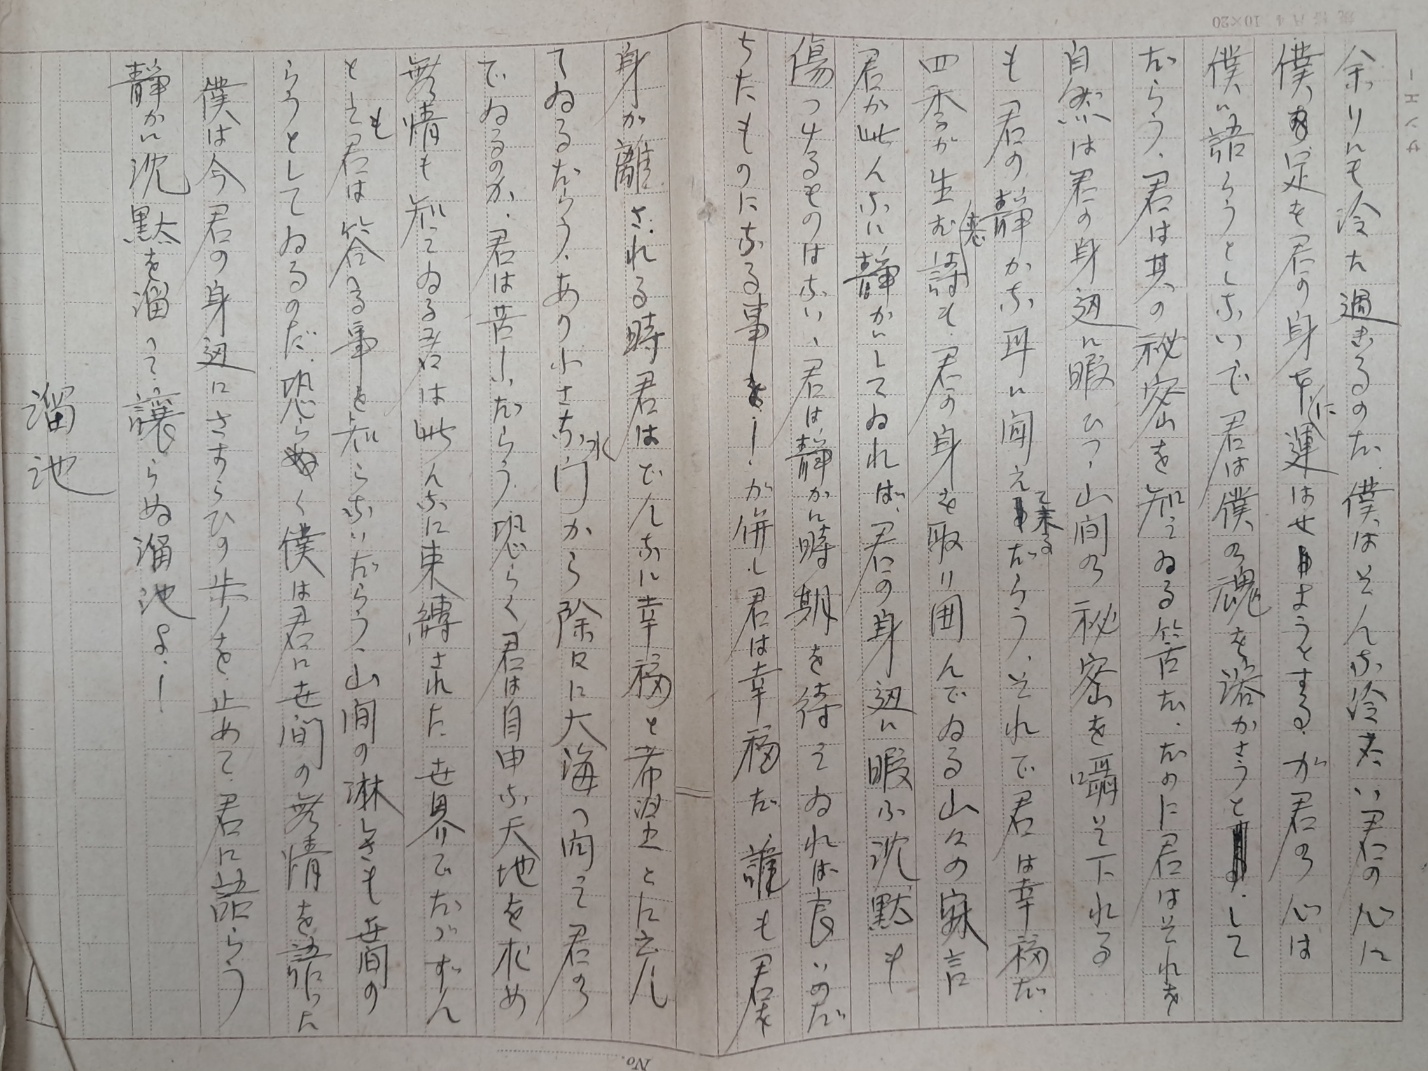 余りにも冷た過ぎるのだ、僕はそんな冷たい君の心に
僕の足も君の身に運はせようとする、が君の心は
僕に語らうとしないで君は僕の魂を溶かさうとして
だらう、君は其の秘密を知てゐる筈だ、なのに君はそれを
自然は君の身辺に暇ひつゝ山間の秘密を囁いて下れる
も君の静かな耳に聞えて来るだらう、それで君は幸福だ、
四季が生む悲詩も、君の身を取り囲んでゐる山々の寂言
君が此んなに静かにしてゐれば、君の身辺に暇ふ沈黙も
傷つけるものはない、君は静かに時期を待てゐれば良いのだ
ちたものになる事を!が併し君は幸福だ、誰も君を
身が離される時君はどんなに幸福と希望とに立ん
てゐるだらう、あの小さな水門から除々に大海へ向って君の
でゐるのか、君は苦しむだらう、恐らく君は自由な天地を求め
無情も知ってゐる君は此んなに束縛された世界でたゞずん
とも君は答る事を知らないだらう、山間の淋しさも世間の
らうとしてゐるのだ、恐らく僕は君に世間の無情を語った
僕は今君の身辺にさまらひの歩を止めて、君に語らう
静かに沈黙を溜って譲らぬ溜池よ!
溜池
No.
10×20